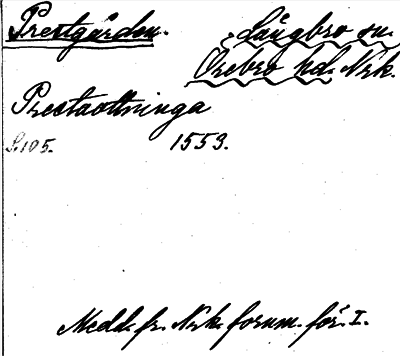 Prestgården. Långbro sn.
Örebro hd. Nrk.
Prestaottninga
S. 105. 1553.
Medd. fr. Nrk. fornm. för. I.